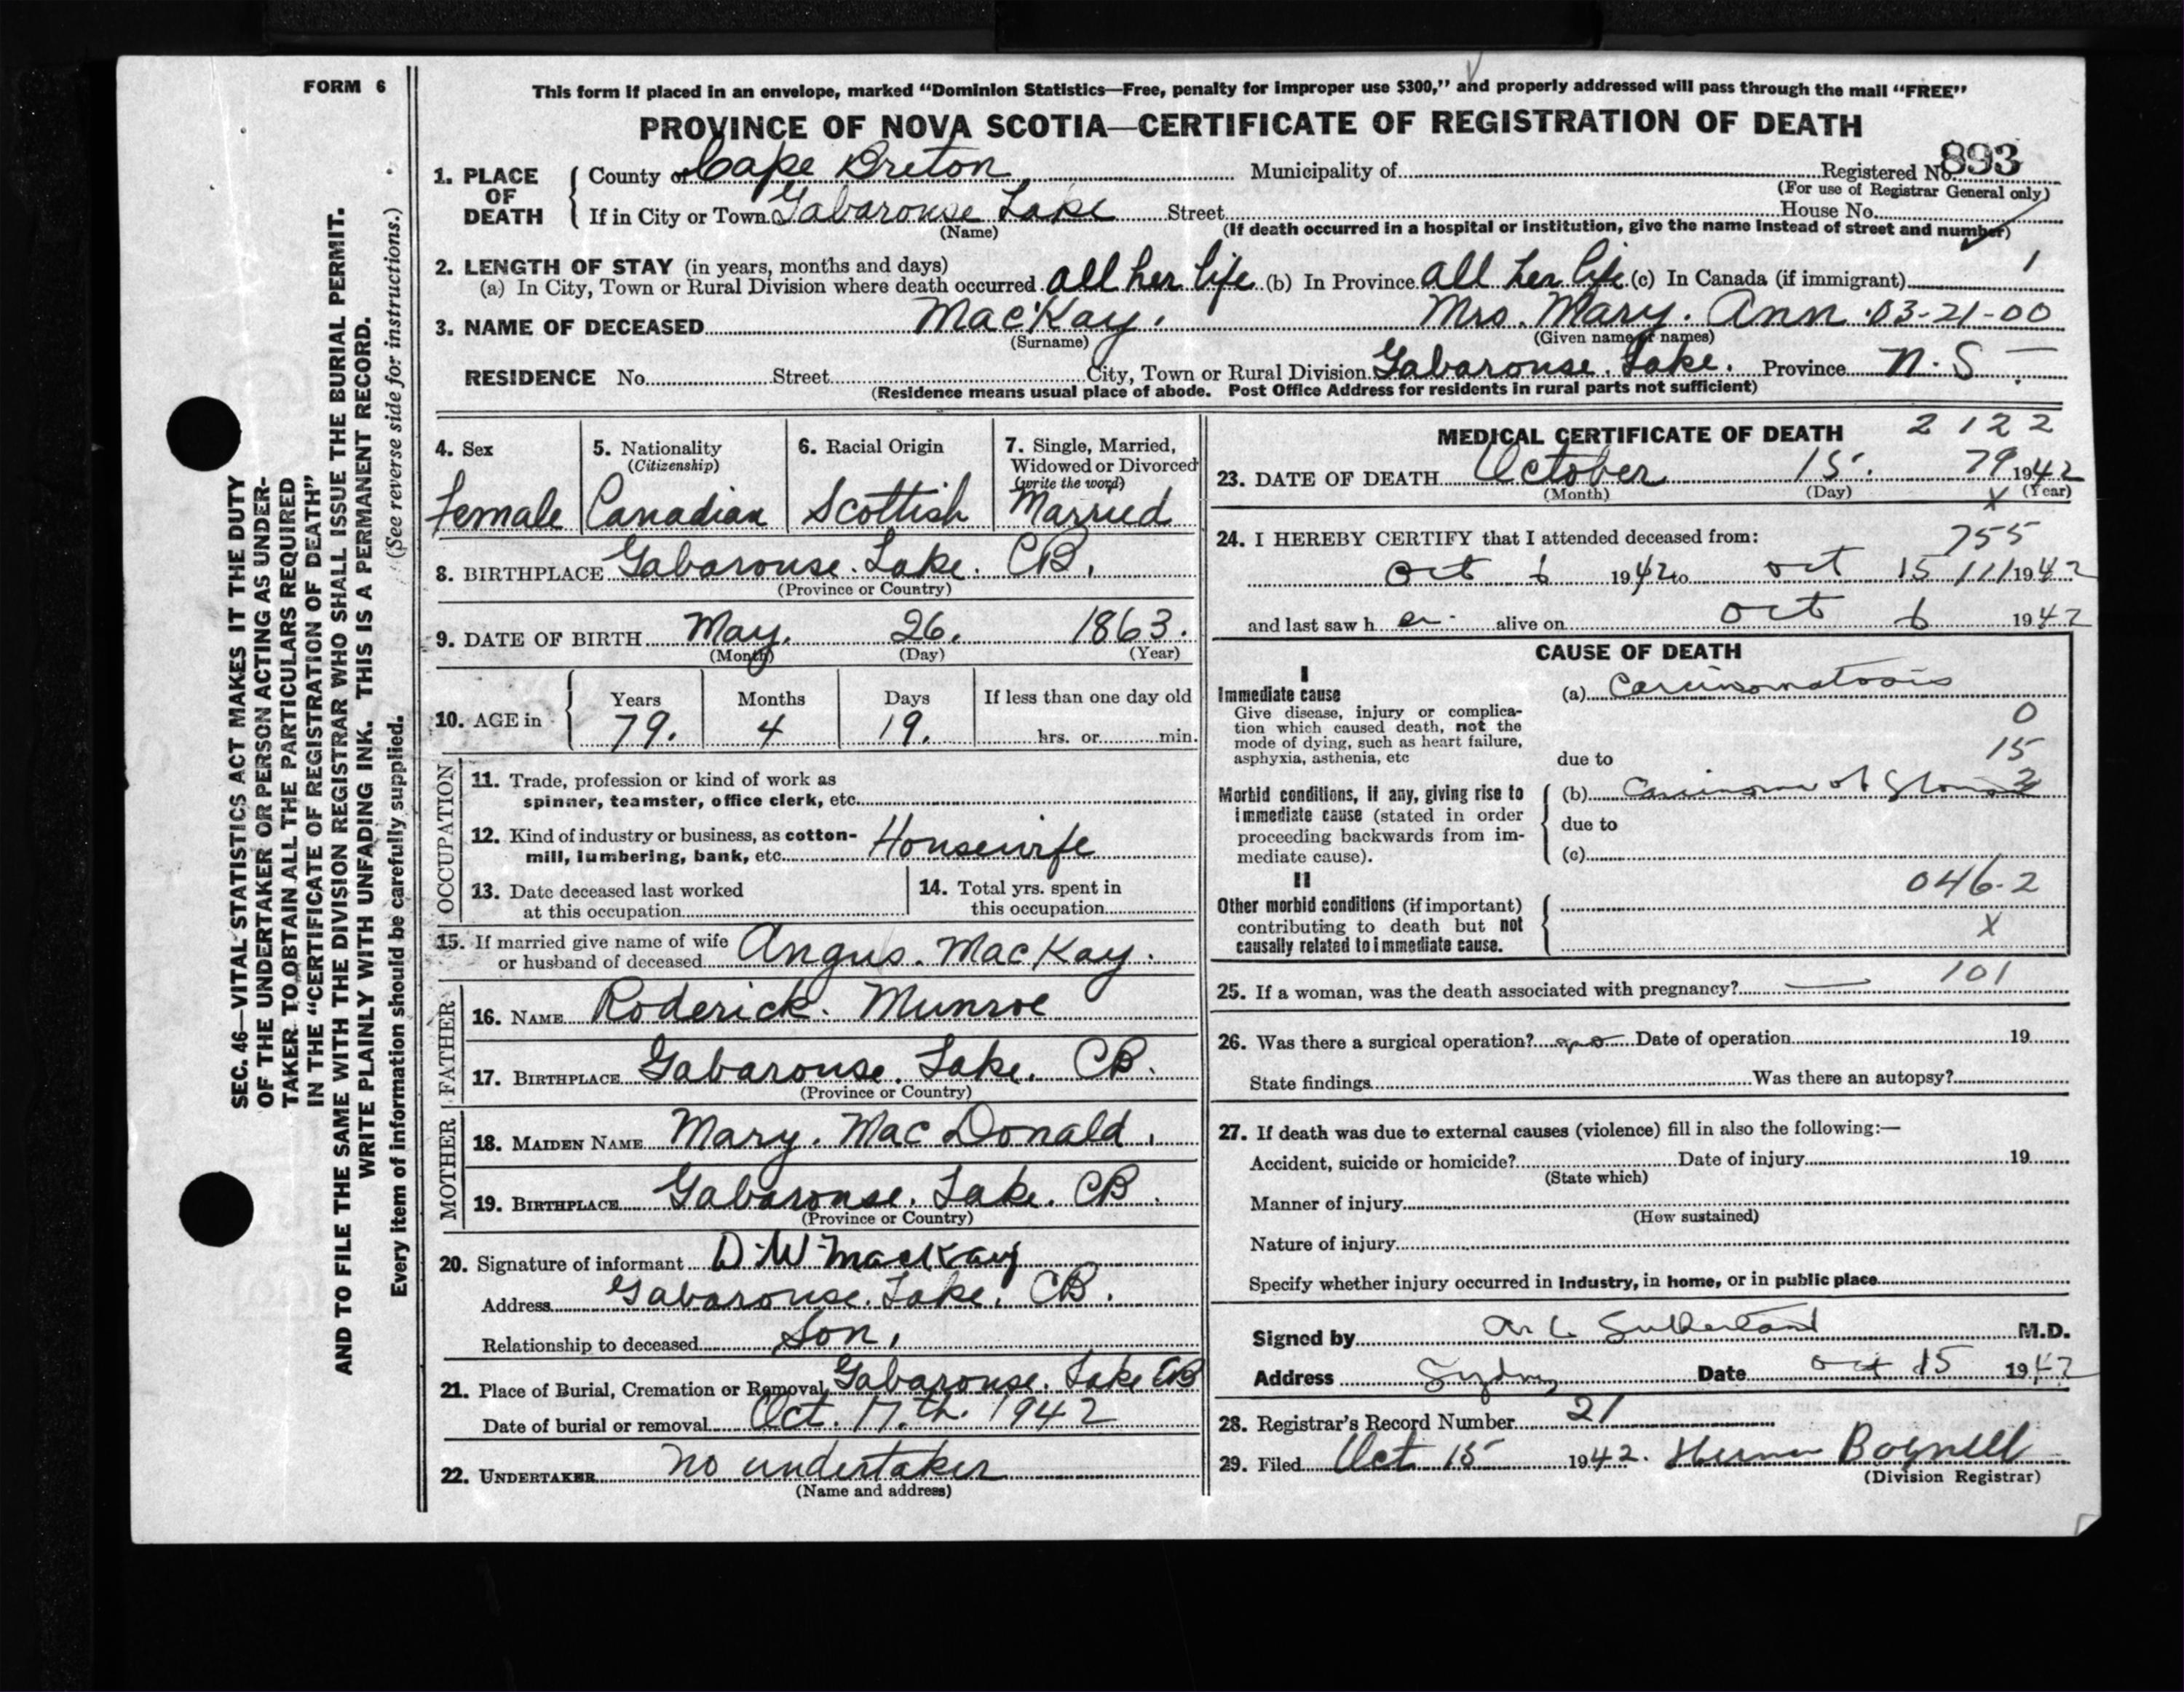 FORM 6
This form if placed in an envelope, marked “Dominion Statistics—Free, penalty for improper use $300,” and properly addressed will pass through the mail “FREE”
PROVINCE OF NOVA SCOTIA—CERTIFICATE OF REGISTRATION OF DEATH
893
1. PLACE OF DEATH
County of Cape Breton Municipality of Registered No.
(For use of Registrar General only)
If in City or Town Gabarouse Lake Street House No.
(Name)
(If death occurred in a hospital or institution, give the name instead of street and number)
2. LENGTH OF STAY (in years, months and days)
(a) In City, Town or Rural Division where death occurred all her life (b) In Province all her life (c) In Canada (if immigrant) 1
3. NAME OF DECEASED MacKay. Mrs. Mary. Ann 03-21-00
(Surname) (Given name or names)
RESIDENCE No. Street City, Town or Rural Division Gabarouse. Lake. Province N.S.
(Residence means usual place of abode. Post Office Address for residents in rural parts not sufficient)
4. Sex
Female
5. Nationality
(Citizenship)
Canadian
6. Racial Origin
Scottish
7. Single, Married,
Widowed or Divorced
(write the word)
Married
8. BIRTHPLACE Gabarouse. Lake. CB.
(Province or Country)
9. DATE OF BIRTH May. 26. 1863.
(Month) (Day) (Year)
10. AGE in
Years Months Days If less than one day old
79. 4 19. hrs. or min.
OCCUPATION
11. Trade, profession or kind of work as
spinner, teamster, office clerk, etc.
12. Kind of industry or business, as cotton-
mill, lumbering, bank, etc. Housewife
13. Date deceased last worked
at this occupation
14. Total yrs. spent in
this occupation
15. If married give name of wife
or husband of deceased Angus. MacKay.
FATHER
16. NAME Roderick. Munroe
17. BIRTHPLACE Gabarouse. Lake. CB.
(Province or Country)
MOTHER
18. MAIDEN NAME Mary. MacDonald.
19. BIRTHPLACE Gabarouse. Lake. CB.
(Province or Country)
20. Signature of informant D. W. MacKay
Address Gabarouse. Lake. CB.
Relationship to deceased Son.
21. Place of Burial, Cremation or Removal Gabarouse. Lake CB
Date of burial or removal Oct. 17.th. 1942
22. UNDERTAKER No undertaker
(Name and address)
MEDICAL CERTIFICATE OF DEATH 2 122
23. DATE OF DEATH October 15. 79 1942
(Month) (Day) x (Year)
24. I HEREBY CERTIFY that I attended deceased from:
755
Oct 6 1942 to Oct 15 111 1942
and last saw her alive on Oct 6 1942
CAUSE OF DEATH
I
Immediate cause
Give disease, injury or complica-
tion which caused death, not the
mode of dying, such as heart failure,
asphyxia, asthenia, etc
(a) Carcinomatosis
0
15
due to
2
Morbid conditions, if any, giving rise to
immediate cause (stated in order
proceeding backwards from im-
mediate cause).
(b) Carcinoma of
due to
(c)
II
Other morbid conditions (if important)
contributing to death but not
causally related to immediate cause.
046-2
x
25. If a woman, was the death associated with pregnancy? — 101
26. Was there a surgical operation? no Date of operation 19
State findings Was there an autopsy?
27. If death was due to external causes (violence) fill in also the following:—
Accident, suicide or homicide? Date of injury 19
(State which)
Manner of injury
(How sustained)
Nature of injury
Specify whether injury occurred in Industry, in home, or in public place
Signed by Sutherland M.D.
Address Sydney Date Oct 15 1942
28. Registrar's Record Number 21
29. Filed Oct 15 1942.
(Division Registrar)
SEC. 46—VITAL STATISTICS ACT MAKES IT THE DUTY
OF THE UNDERTAKER OR PERSON ACTING AS UNDER-
TAKER TO OBTAIN ALL THE PARTICULARS REQUIRED
IN THE “CERTIFICATE OF REGISTRATION OF DEATH”
AND TO FILE THE SAME WITH THE DIVISION REGISTRAR WHO SHALL ISSUE THE BURIAL PERMIT.
WRITE PLAINLY WITH UNFADING INK. THIS IS A PERMANENT RECORD.
Every item of information should be carefully supplied. (See reverse side for instructions.)